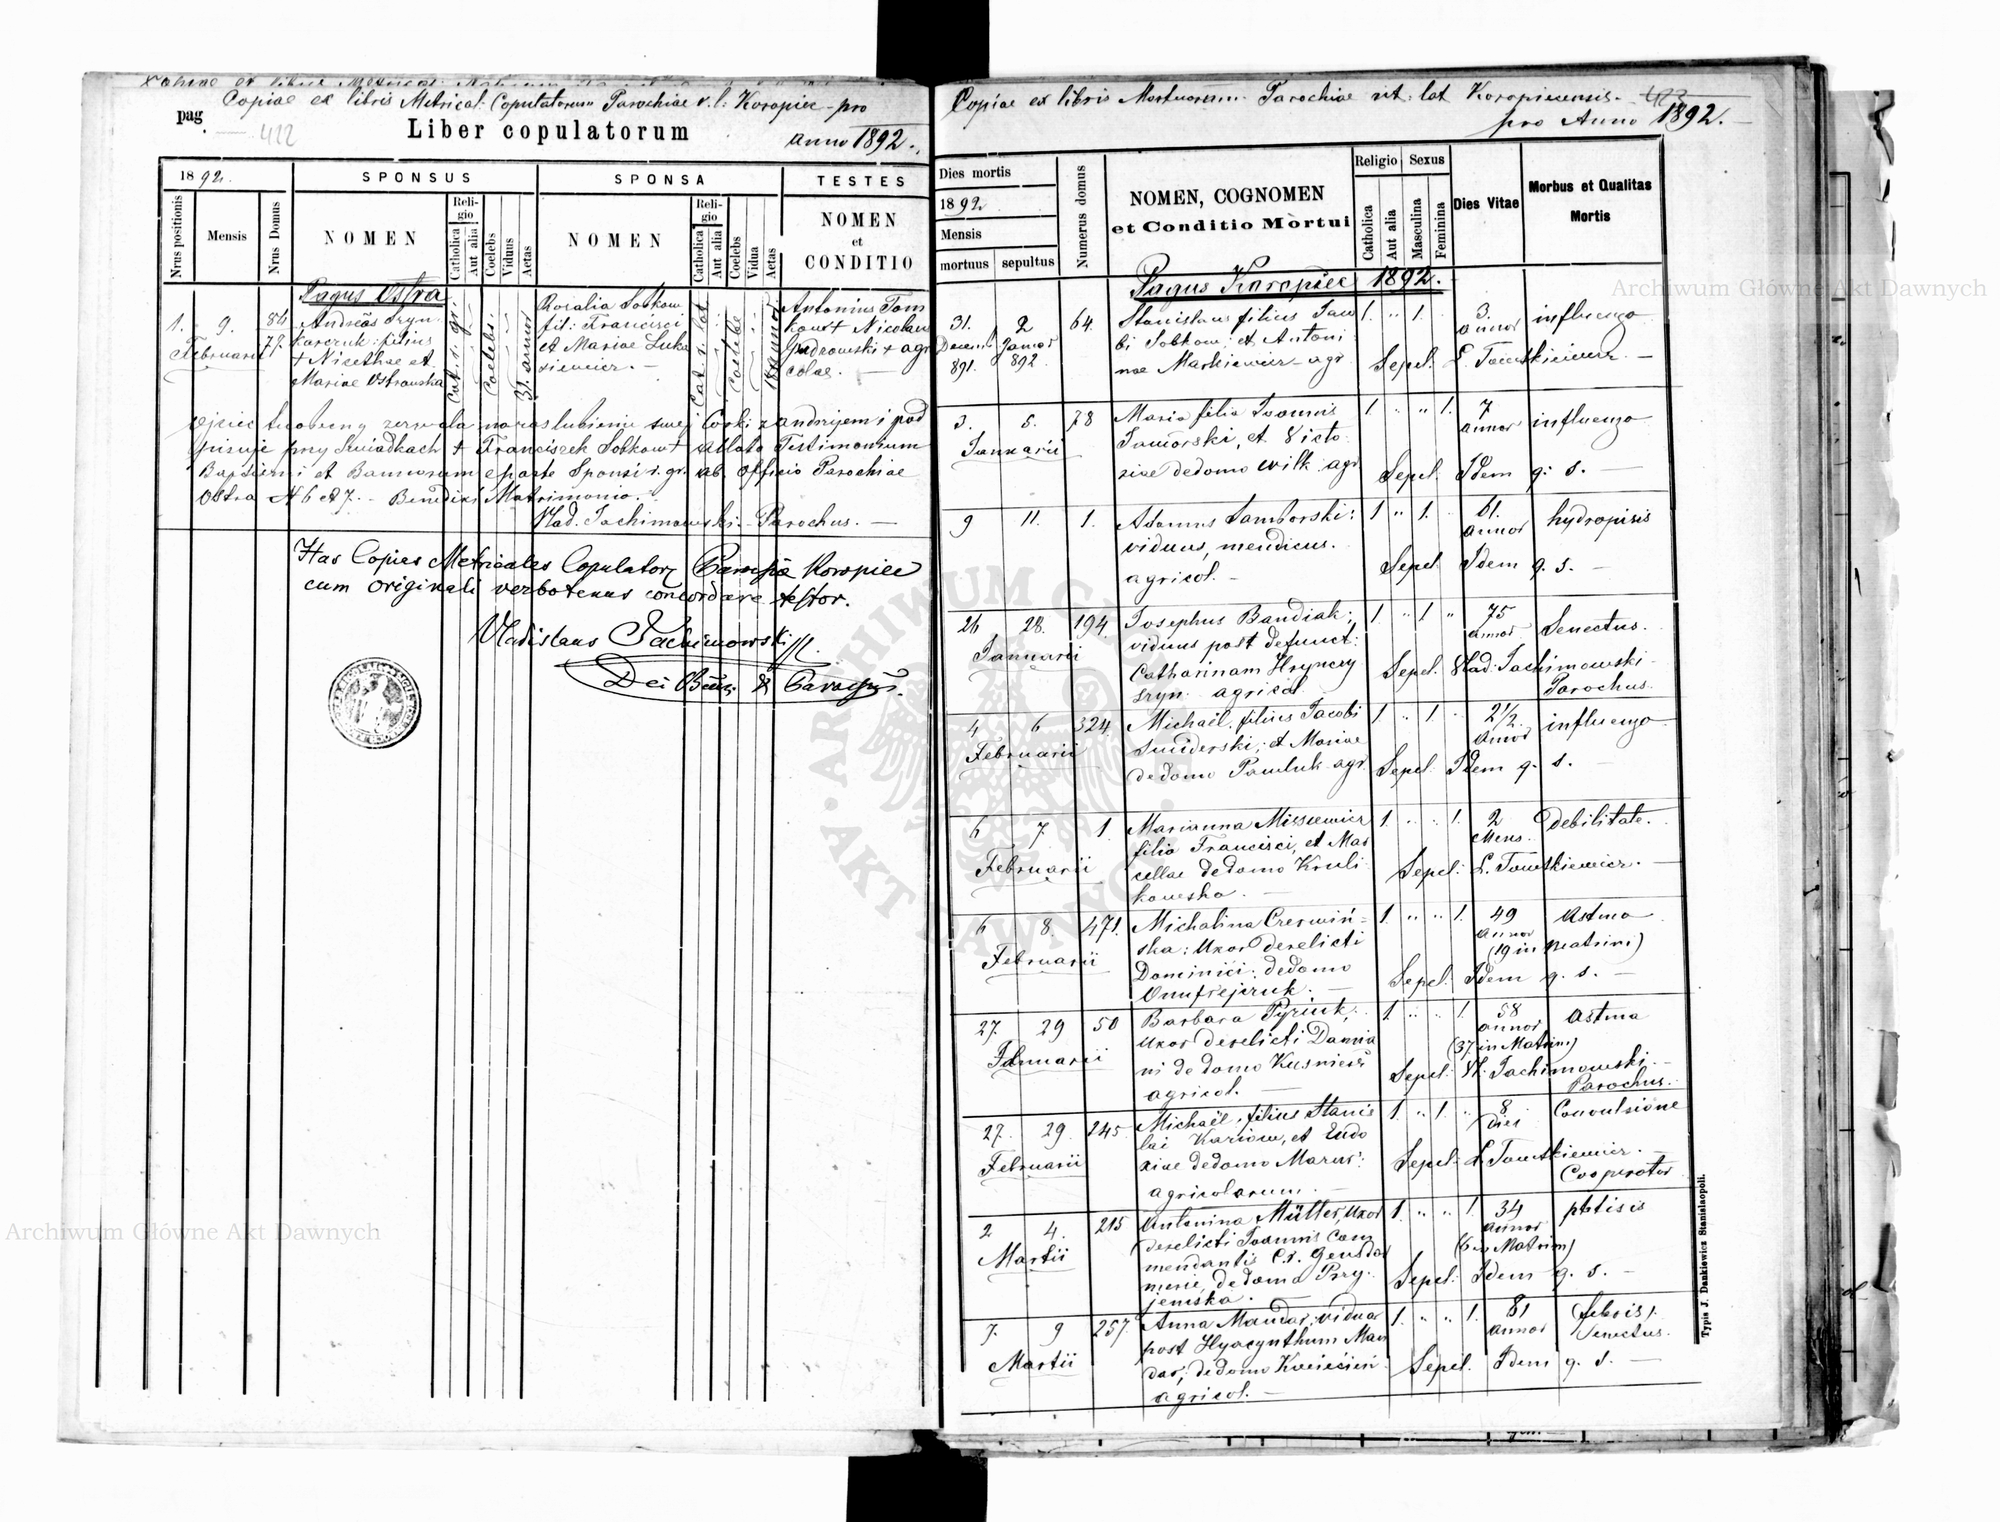 Copiae ex libris Metrical: Copulatorum Parochiae r. l: Koropiec pro
pag
422
Liber copulatorum
anno 1892.
1892.
SPONSUS
SPONSA
TESTES
Nrus positionis
Mensis
Nrus Domus
NOMEN
Religio
Catholica
Aut alia
Coelebs
Viduus
Aetas
NOMEN
Religio
Catholica
Aut alia
Coelebs
Vidua
Aetas
NOMEN
et
CONDITIO
Pagus Ostra
1.
9.
Februarii
84
77.
Andreas
filius
+ Nicethae et
Mariae Ostrowska
Cat. r. gr.
Coelebs.
31. annor
Rosalia Sobkow
fil: Francisci
et Mariae Luka
siewicz. —
Cat. r. lat
Coelebs
18 annor
Antonius Tom
kow + Nicolaus
+ agri
colae. —
Ojciec
zezwala na zaslubienie swej Corki z Andrijem i pod
pisuje przy Swiadkach + Franciszek Sobkow + Allato Testimonium
Baptismi et Bannorum e parte Sponsi r. gr. ab. Officio Parochiae
Ostra N 6 et 7. - Benedixi Matrimonio.
Vlad. Jachimowski. - Parochus. —
Has Copias Metricales Copulator
Koropiec
cum originali verbotenus concordare testor.
Vladislaus Jachimowski
Copiae ex libris Mortuorum Parochiae rit: lat Koropiecensis. — 423
pro Anno 1892. —
Dies mortis
1892
Mensis
mortuus
sepultus
Numerus domus
NOMEN, COGNOMEN
et Conditio Mortui
Religio
Catholica
Aut alia
Sexus
Masculina
Feminina
Dies Vitae
Morbus et Qualitas
Mortis
Pagus Koropiec 1892.
31.
Decem
891.
2
Januar
892
64.
Stanislaus filius Jaco
bi Sobkow: et Antoni
nae Markiewicz agr.
1. " 1.
3.
annor
influenza
Sepel: L. Tomtkiewicz. —
3.
5.
Januarii
78
Maria filia Joannis
Jaworski, et Victo
riae de domo Wilk. agr.
1. " " 1.
7
annor
influenza
Sepel. Idem q. s. —
9
11.
1.
Adamus Samborski:
viduus, mendicus.
agricol. —
1 " 1.
61.
annor
hydropisis
Sepel Idem q. s. —
26
28.
Januarii
194.
Josephus Bandiak;
viduus post defunct:
Catharinam Hryncey
szyn. agricol
1. " 1 "
75
annor
Senectus.
Sepel. Vlad: Jachimowski.
Parochus.
4
6
Februarii
324.
Michaël, filius Jacobi
Smiderski; et Mariae
de domo Pawluk agr.
1. " 1.
2 1/2.
annor
influenza
Sepel. Idem q. s. —
6
7.
Februarii
1.
Marianna Missiewicz
filia Francisci, et Mar
cellae de domo Kruli
kowska. —
1. " " 1.
2
Mens.
Debilitate. —
Sepel: L. Tomtkiewicz. —
6
8.
Februarii
471.
Michalina Czerwiń-
ska: Uxor derelicti
Dominici: de domo
Onufrejczuk. —
1. " " 1.
49
annor
(19 in Matrim)
Astma
Sepel: Idem q. s. —
27.
29
50
Barbara Pyziuk;
uxor derelicti Damia
ni de domo Kusnierz
agricol. —
1. " " 1.
58
annor
(37. in Matrim)
Astma
Sepel: Vl: Jachimowski. —
Parochus.
27.
29.
Februarii
245.
Michaël, filius Stanis
lai Kariow, et Eudo
xiae de domo Marus:
agricolarum. —
1. " 1. "
8
dies
Convulsione
Sepel: L. Tomtkiewicz. —
Cooperator
2
4.
Martii
215
Antonina Müller, uxor
derelicti Joannis Com
mendantis C. r. Gensdar
merie, de domo Przy
jemska. —
1. " " 1.
34
annor
(6 in Matrim)
phtisis
Sepel: Idem q. s. —
7.
9
Martii
257.
Anna Mandar, vidua
post Hyacynthum Man
dar; de domo Kwiecień
agricol. —
1. " " 1.
81
annor
febris,
Senectus.
Sepel. Idem q. s. —
Typis J. Dankiewicz Stanislaopoli.
Archiwum Główne Akt Dawnych
Archiwum Główne Akt Dawnych
ARCHIWUM GŁÓWNE AKT DAWNYCH